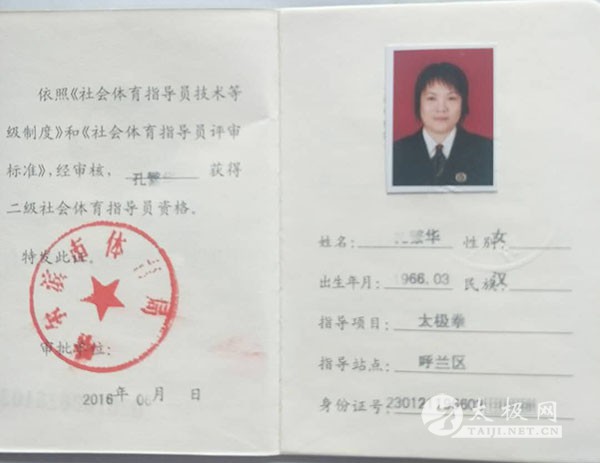 依照《社会体育指导员技术等
级制度》和《社会体育指导员评审
标准》,经审核, 孔 获得
二级社会体育指导员资格。
特发此证。
审批单位:
2016 年 06 月 日
姓名: 繁华 性别: 女
出生年月: 1966.03 民族: 汉
指导项目: 太极拳
指导站点: 呼兰区
身份证号:
太极网
TAIJI.NET.CN